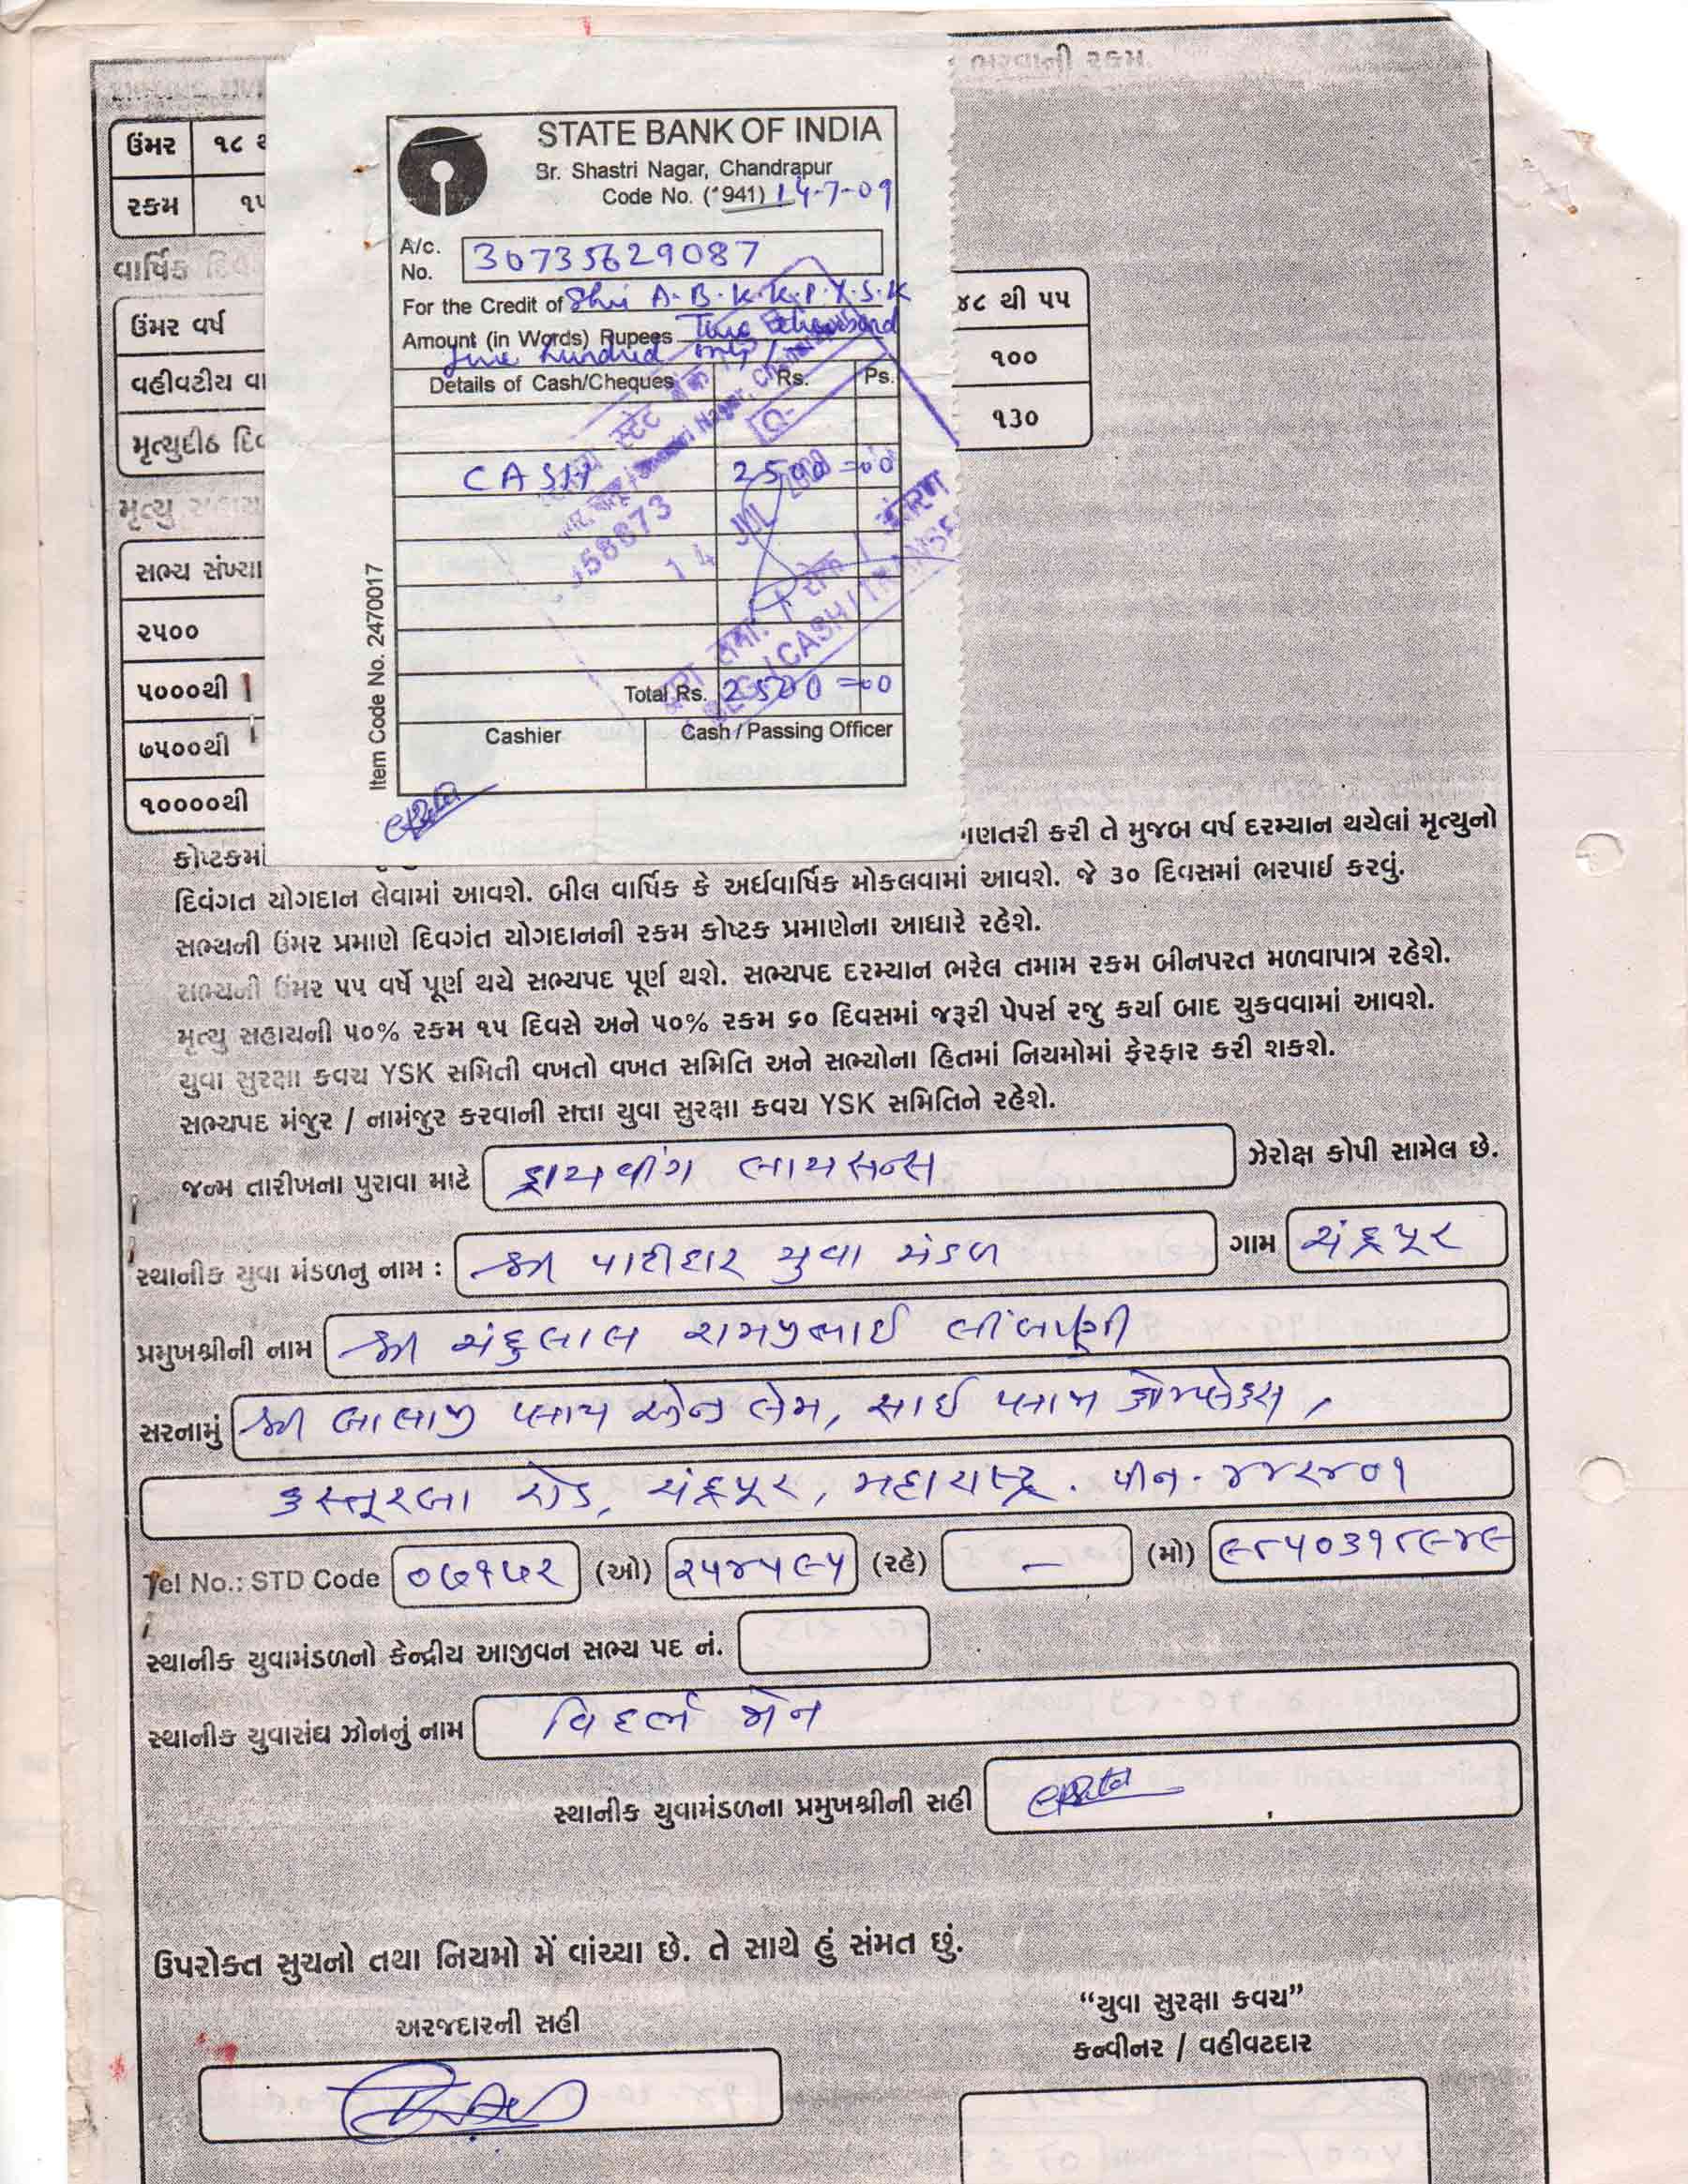 ભરવાની રકમ
ઉંમર ૧૮
રકમ
વાર્ષિક
ઉંમર વર્ષ
૪૮ થી ૫૫
વહીવટીય
૧૦૦
મૃત્યુદીઠ
૧૩૦
મૃત્યુ
સભ્ય સંખ્યા
૨૫૦૦
૫૦૦૦થી
૭૫૦૦થી
૧૦૦૦૦થી
STATE BANK OF INDIA
Br. Shastri Nagar, Chandrapur
Code No. ( 941) 14-7-09
A/c. No. 30735629087
For the Credit of Shri A.B.K.K.P.Y.S.K
Amount (in Words) Rupees Two thousand
five hundred only
Details of Cash/Cheques Rs. Ps.
CASH 2500=00
58873
14 JUL 2009
Total Rs. 2500=00
Cashier Cash / Passing Officer
Item Code No. 2470017
ગણતરી કરી તે મુજબ વર્ષ દરમ્યાન થયેલાં મૃત્યુનો
દિવંગત યોગદાન લેવામાં આવશે. બીલ વાર્ષિક કે અર્ધવાર્ષિક મોકલવામાં આવશે. જે ૩૦ દિવસમાં ભરપાઈ કરવું.
સભ્યની ઉંમર પ્રમાણે દિવગંત યોગદાનની રકમ કોષ્ટક પ્રમાણેના આધારે રહેશે.
સભ્યની ઉંમર ૫૫ વર્ષે પૂર્ણ થયે સભ્યપદ પૂર્ણ થશે. સભ્યપદ દરમ્યાન ભરેલ તમામ રકમ બીનપરત મળવાપાત્ર રહેશે.
મૃત્યુ સહાયની ૫૦% રકમ ૧૫ દિવસે અને ૫૦% રકમ ૬૦ દિવસમાં જરૂરી પેપર્સ રજુ કર્યા બાદ ચુકવવામાં આવશે.
યુવા સુરક્ષા કવચ YSK સમિતી વખતો વખત સમિતિ અને સભ્યોના હિતમાં નિયમોમાં ફેરફાર કરી શકશે.
સભ્યપદ મંજુર / નામંજુર કરવાની સત્તા યુવા સુરક્ષા કવચ YSK સમિતિને રહેશે.
જન્મ તારીખના પુરાવા માટે ડ્રાયવીંગ લાયસન્સ ઝેરોક્ષ કોપી સામેલ છે.
સ્થાનીક યુવા મંડળનુ નામ : શ્રી પાટીદાર યુવા મંડળ ગામ ચંદ્રપૂર
પ્રમુખશ્રીની નામ શ્રી ચંદુલાલ રામજીભાઈ લીંબાણી
સરનામું શ્રી બાલાજી પ્લાય એન્ડ લેમ, સાઈ પ્લાઝા કોમ્પલેક્સ,
કસ્તૂરબા રોડ, ચંદ્રપૂર, મહારાષ્ટ્ર. પીન-૪૪૨૪૦૧
Tel No.: STD Code ૦૭૧૭૨ (ઓ) ૨૫૪૫૯૫ (રહે) – (મો) ૯૮૫૦૩૧૮૯૪૯
સ્થાનીક યુવામંડળનો કેન્દ્રીય આજીવન સભ્ય પદ નં.
સ્થાનીક યુવાસંઘ ઝોનનું નામ વિદર્ભ ઝોન
સ્થાનીક યુવામંડળના પ્રમુખશ્રીની સહી
ઉપરોક્ત સુચનો તથા નિયમો મેં વાંચ્યા છે. તે સાથે હું સંમત છું.
અરજદારની સહી
“યુવા સુરક્ષા કવચ”
કન્વીનર / વહીવટદાર